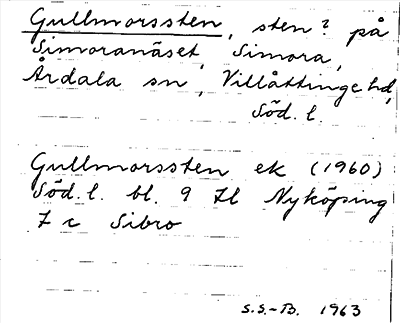 Gullmorssten, sten? på
Simoranäset, Simora,
Årdala sn, Villåttinge hd,
Söd. l.
Gullmorssten ek (1960)
Söd. l. bl. 9 Il Nyköping
7 c Sibro
S.S.-B. 1963